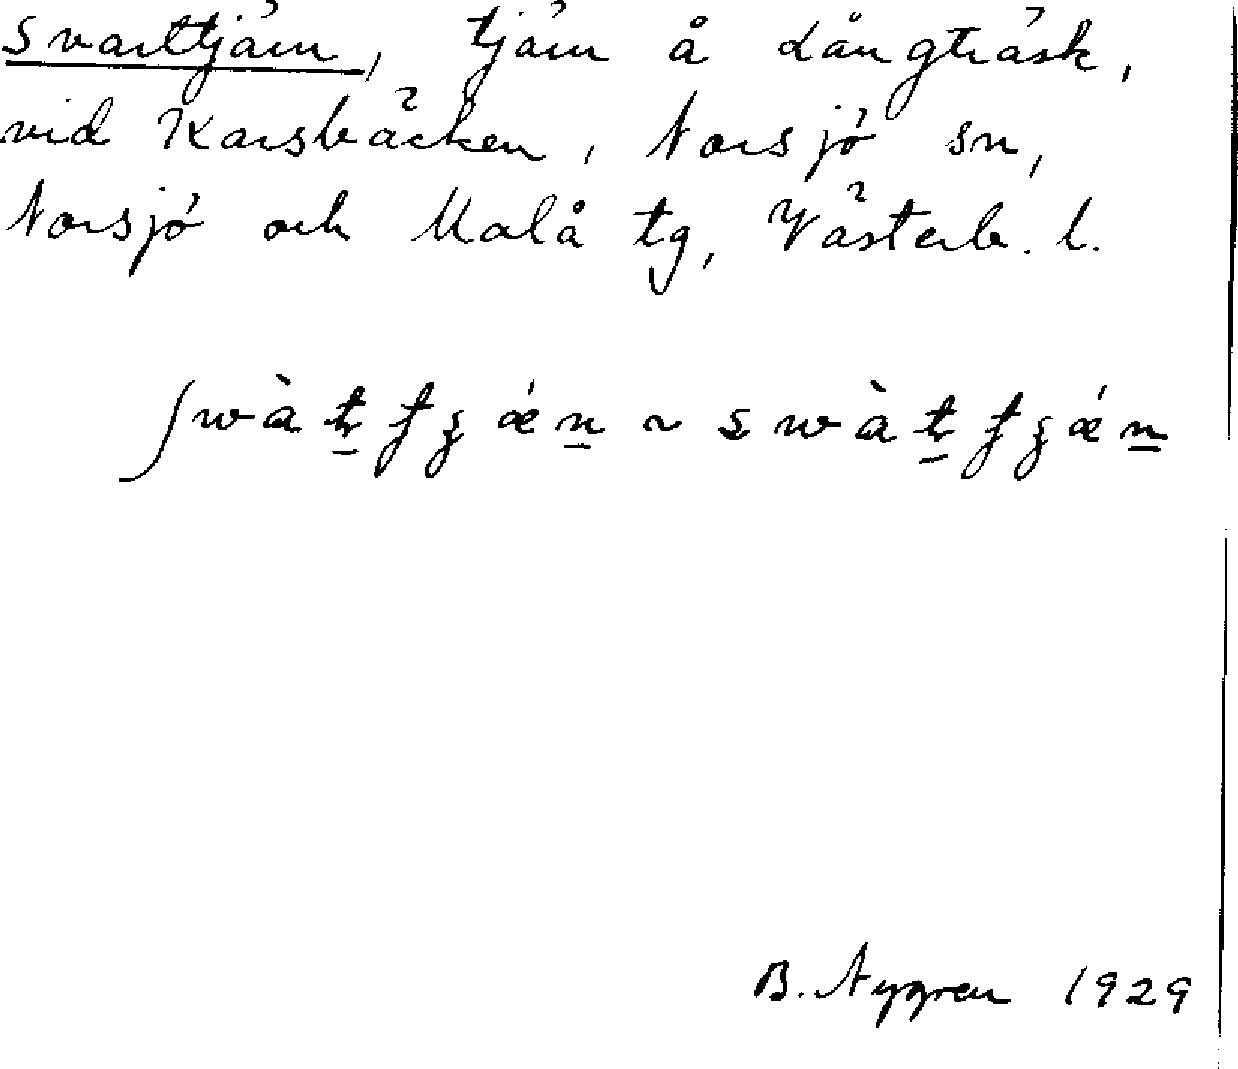 Svarttjärn, tjärn å Långträsk,
vid Karsbäcken, Norsjö sn,
Norsjö och Malå tg, Västerb. l.
ʃwàt̠ʈʂǽn̠ ~ swàt̠ʈʂǽn̠
B. Nygren 1929